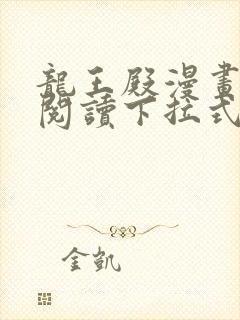 龍王殿漫畫
閱讀下拉式
金凱